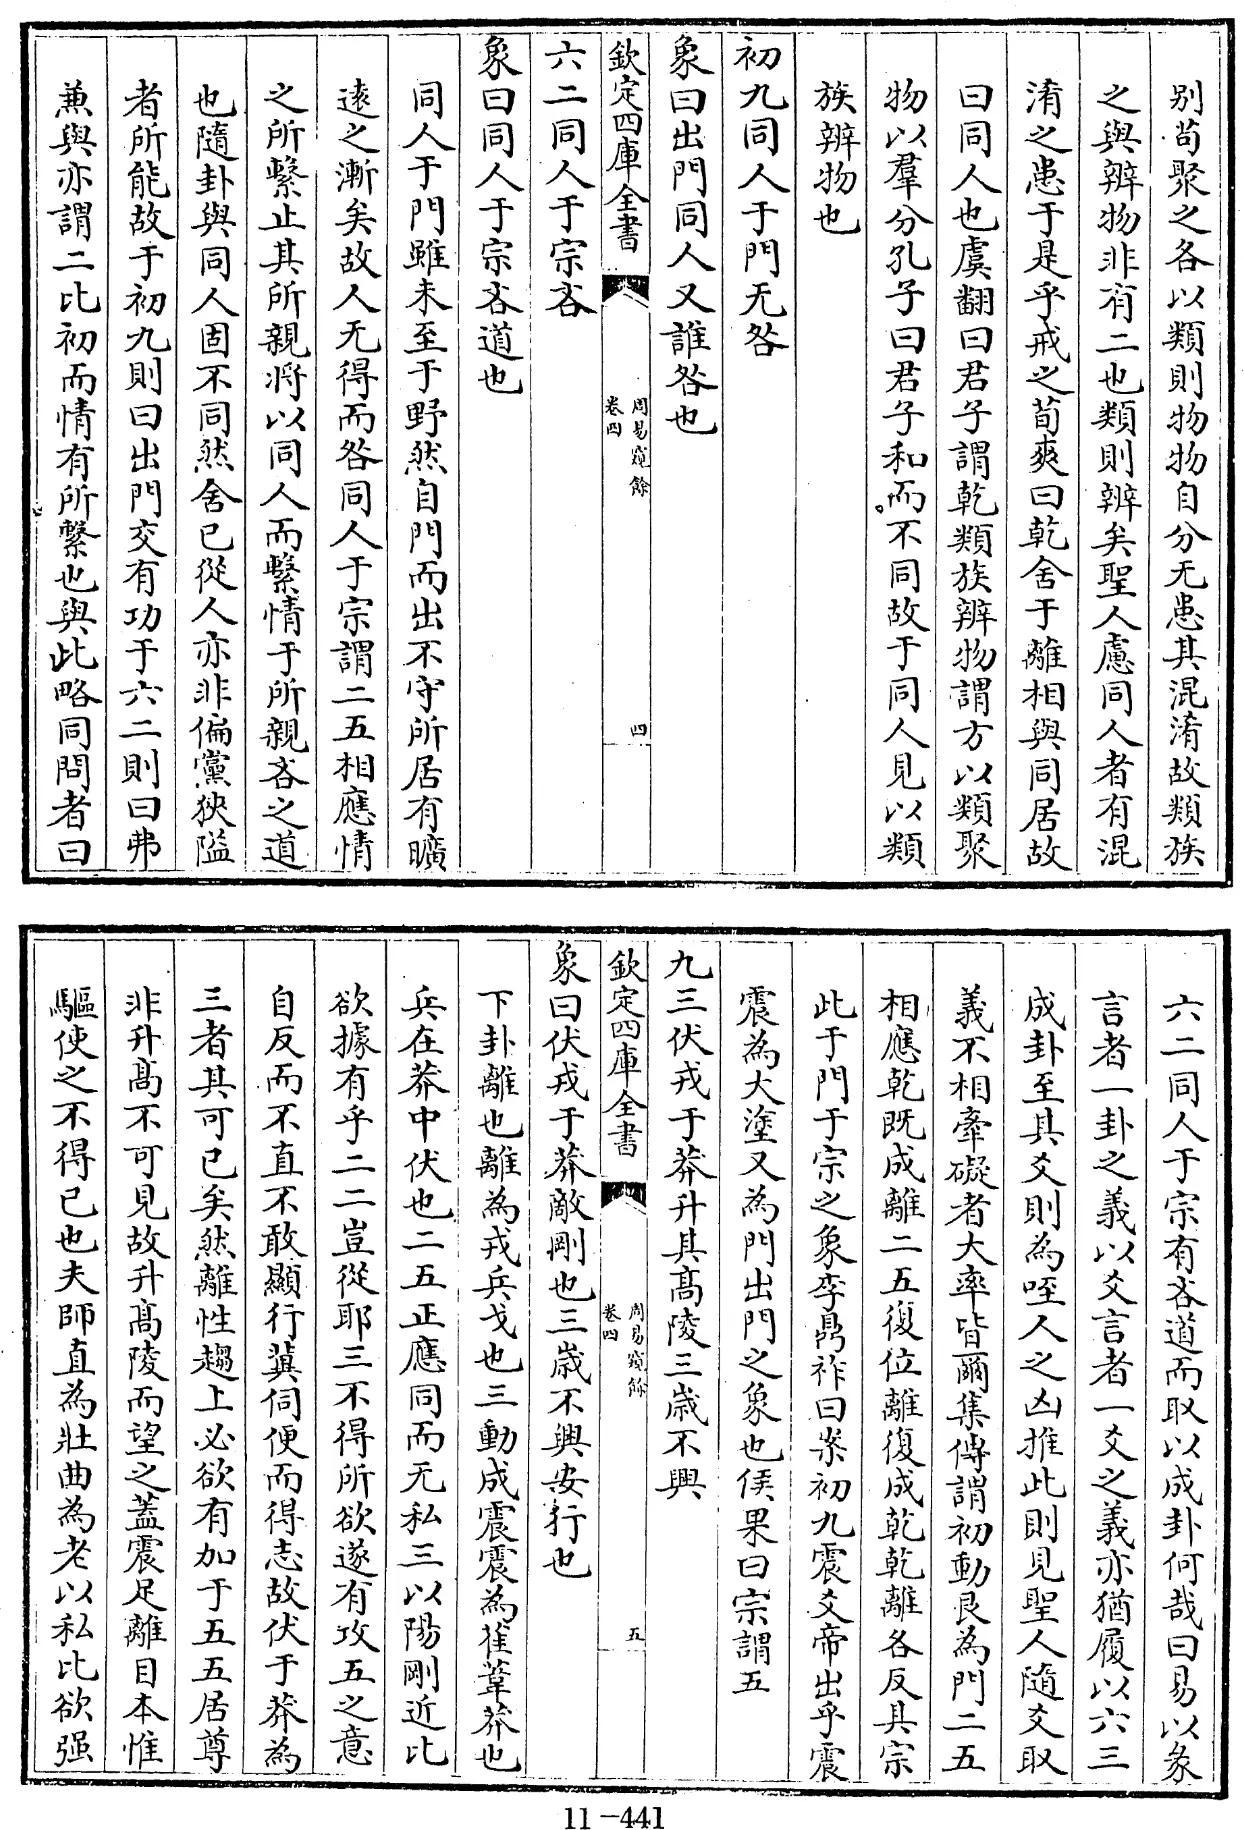 別茍聚之各以類則物物自分无患其混淆故類族
之與辨物非有二也類則辨矣聖人慮同人者有混
淆之患于是乎戒之荀爽曰乾舍于離相與同居故
曰同人也虞翻曰君子謂乾類族辨物謂方以類聚
物以羣分孔子曰君子和而不同故于同人見以類
族辨物也
初九同人于門无咎
象曰出門同人又誰咎也
欽定四庫全書
周易窺餘
卷四
四
六二同人于宗吝
象曰同人于宗吝道也
同人于門雖未至于野然自門而出不守所居有曠
逺之漸矣故人无得而咎同人于宗謂二五相應情
之所繫止其所親將以同人而繫情于所親吝之道
也隨卦與同人固不同然舍已從人亦非偏黨狹隘
者所能故于初九則曰出門交有功于六二則曰弗
兼與亦謂二比初而情有所繫也與此略同問者曰
六二同人于宗有吝道而取以成卦何哉曰易以彖
言者一卦之義以爻言者一爻之義亦猶履以六三
成卦至其爻則為咥人之凶推此則見聖人隨爻取
義不相牽礙者大率皆爾集傳謂初動艮為門二五
相應乾既成離二五復位離復成乾乾離各反其宗
此于門于宗之象李鼎祚曰案初九震爻帝出乎震
震為大塗又為門出門之象也侯果曰宗謂五
九三伏戎于莽升其髙陵三歲不興
欽定四庫全書
周易窺餘
卷四
五
象曰伏戎于莽敵剛也三歲不興安行也
下卦離也離為戎兵戈也三動成震震為萑葦莽也
兵在莽中伏也二五正應同而无私三以陽剛近比
欲據有乎二二豈從耶三不得所欲遂有攻五之意
自反而不直不敢顯行冀伺便而得志故伏于莽為
三者其可已矣然離性趨上必欲有加于五五居尊
非升髙不可見故升髙陵而望之蓋震足離目本惟
驅使之不得已也夫師直為壯曲為老以私比欲强
11-441